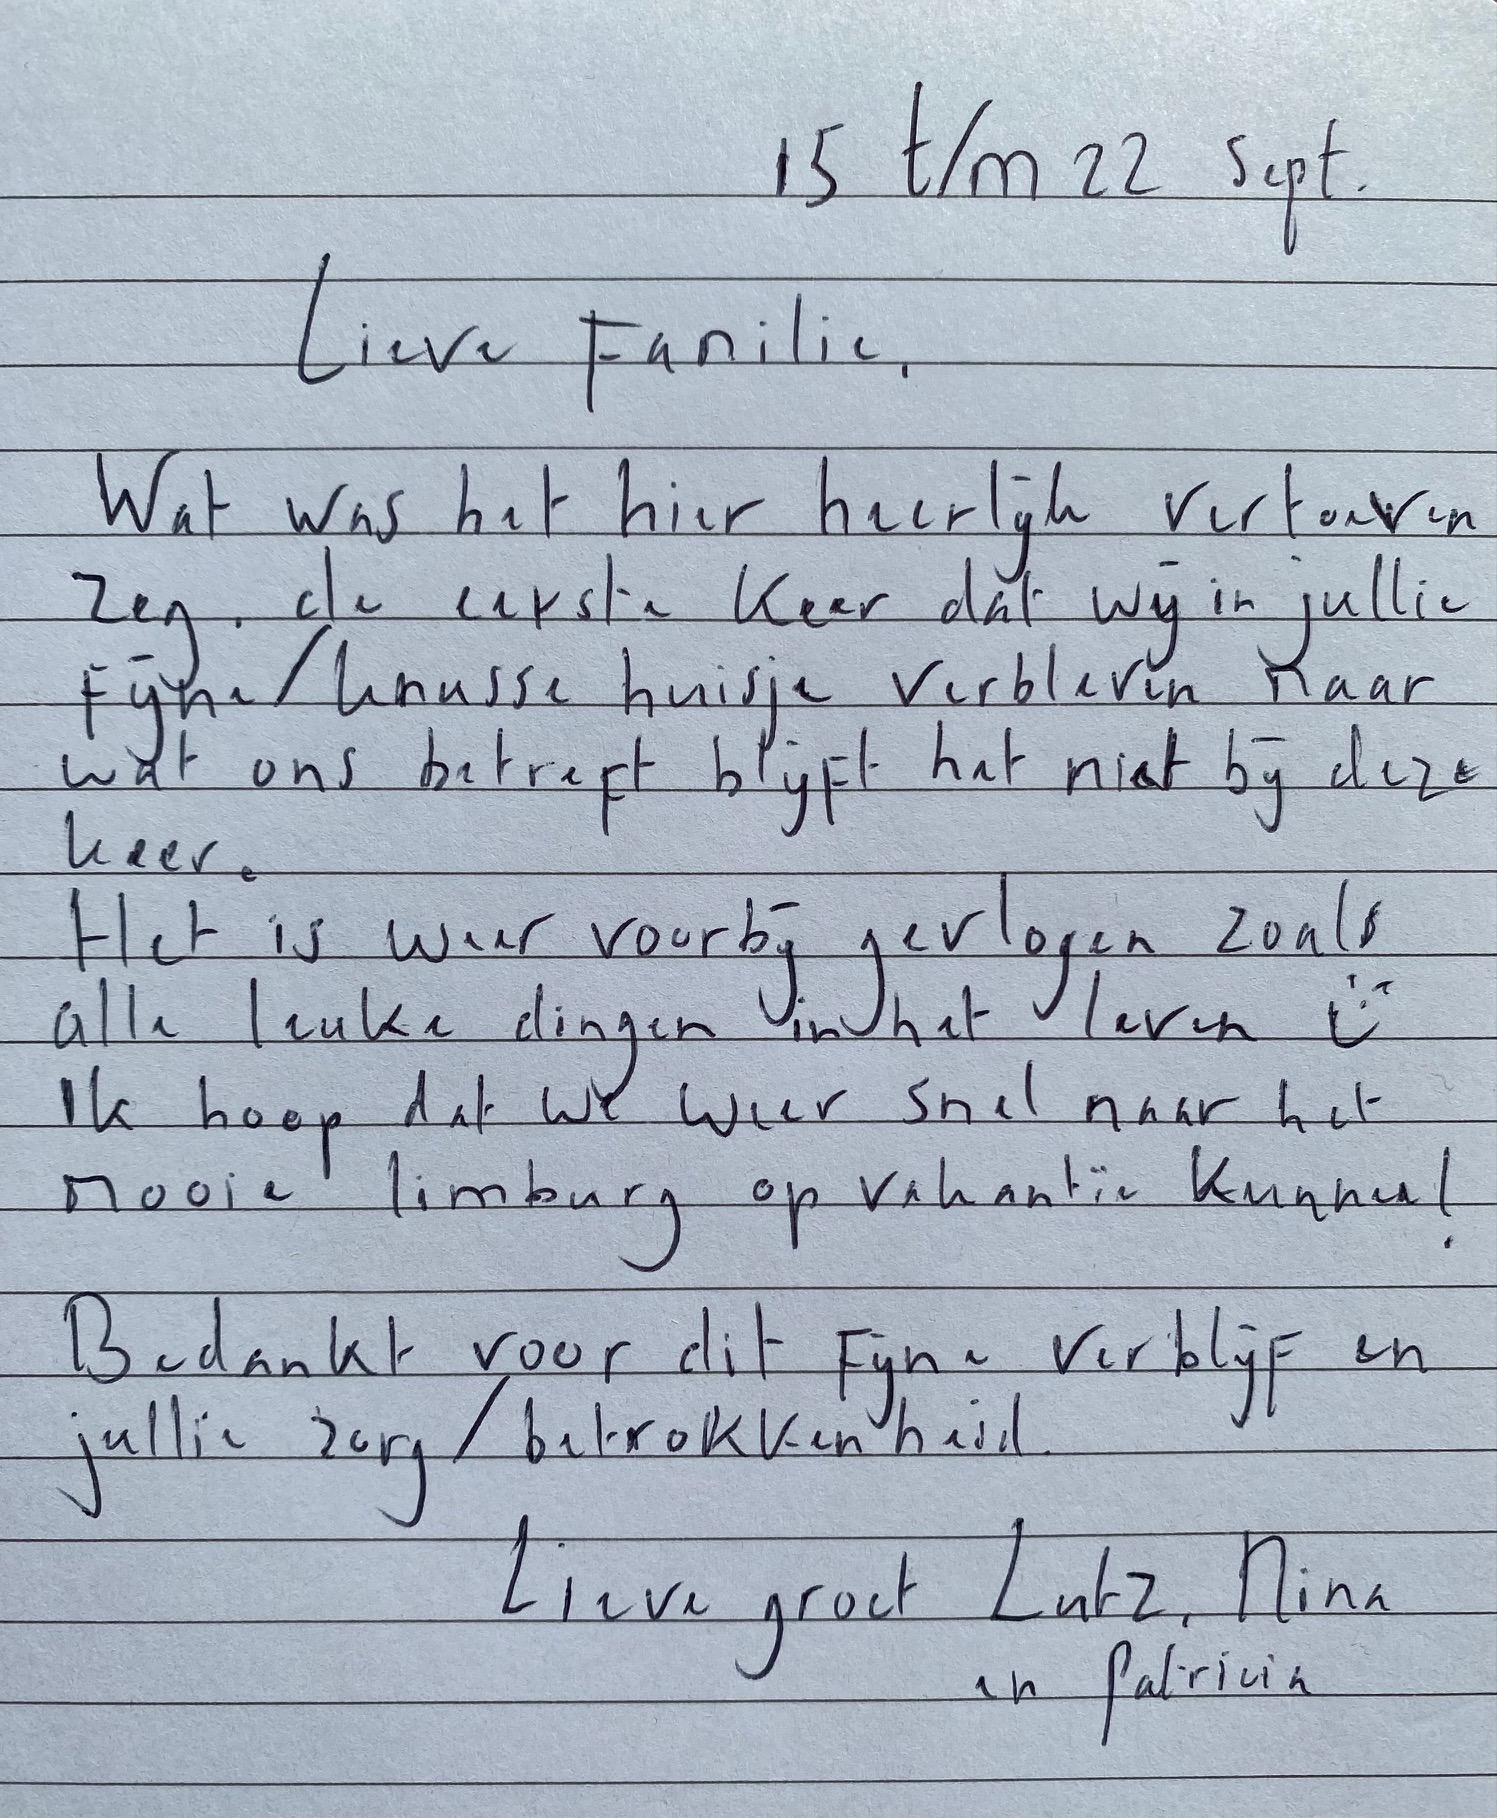 15 t/m 22 sept.
Lieve Familie,
Wat was het hier heerlijk vertoeven
zeg, de eerste keer dat wij in jullie
fijne/knusse huisje verbleven maar
wat ons betreft blijft het niet bij deze
keer.
Het is weer voorbij gevlogen zoals
alle leuke dingen in het leven ü
Ik hoop dat we weer snel naar het
mooie limburg op vakantie kunnen!
Bedankt voor dit fijne verblijf en
jullie zorg/betrokkenheid.
Lieve groet Lutz, Nina
en Patricia